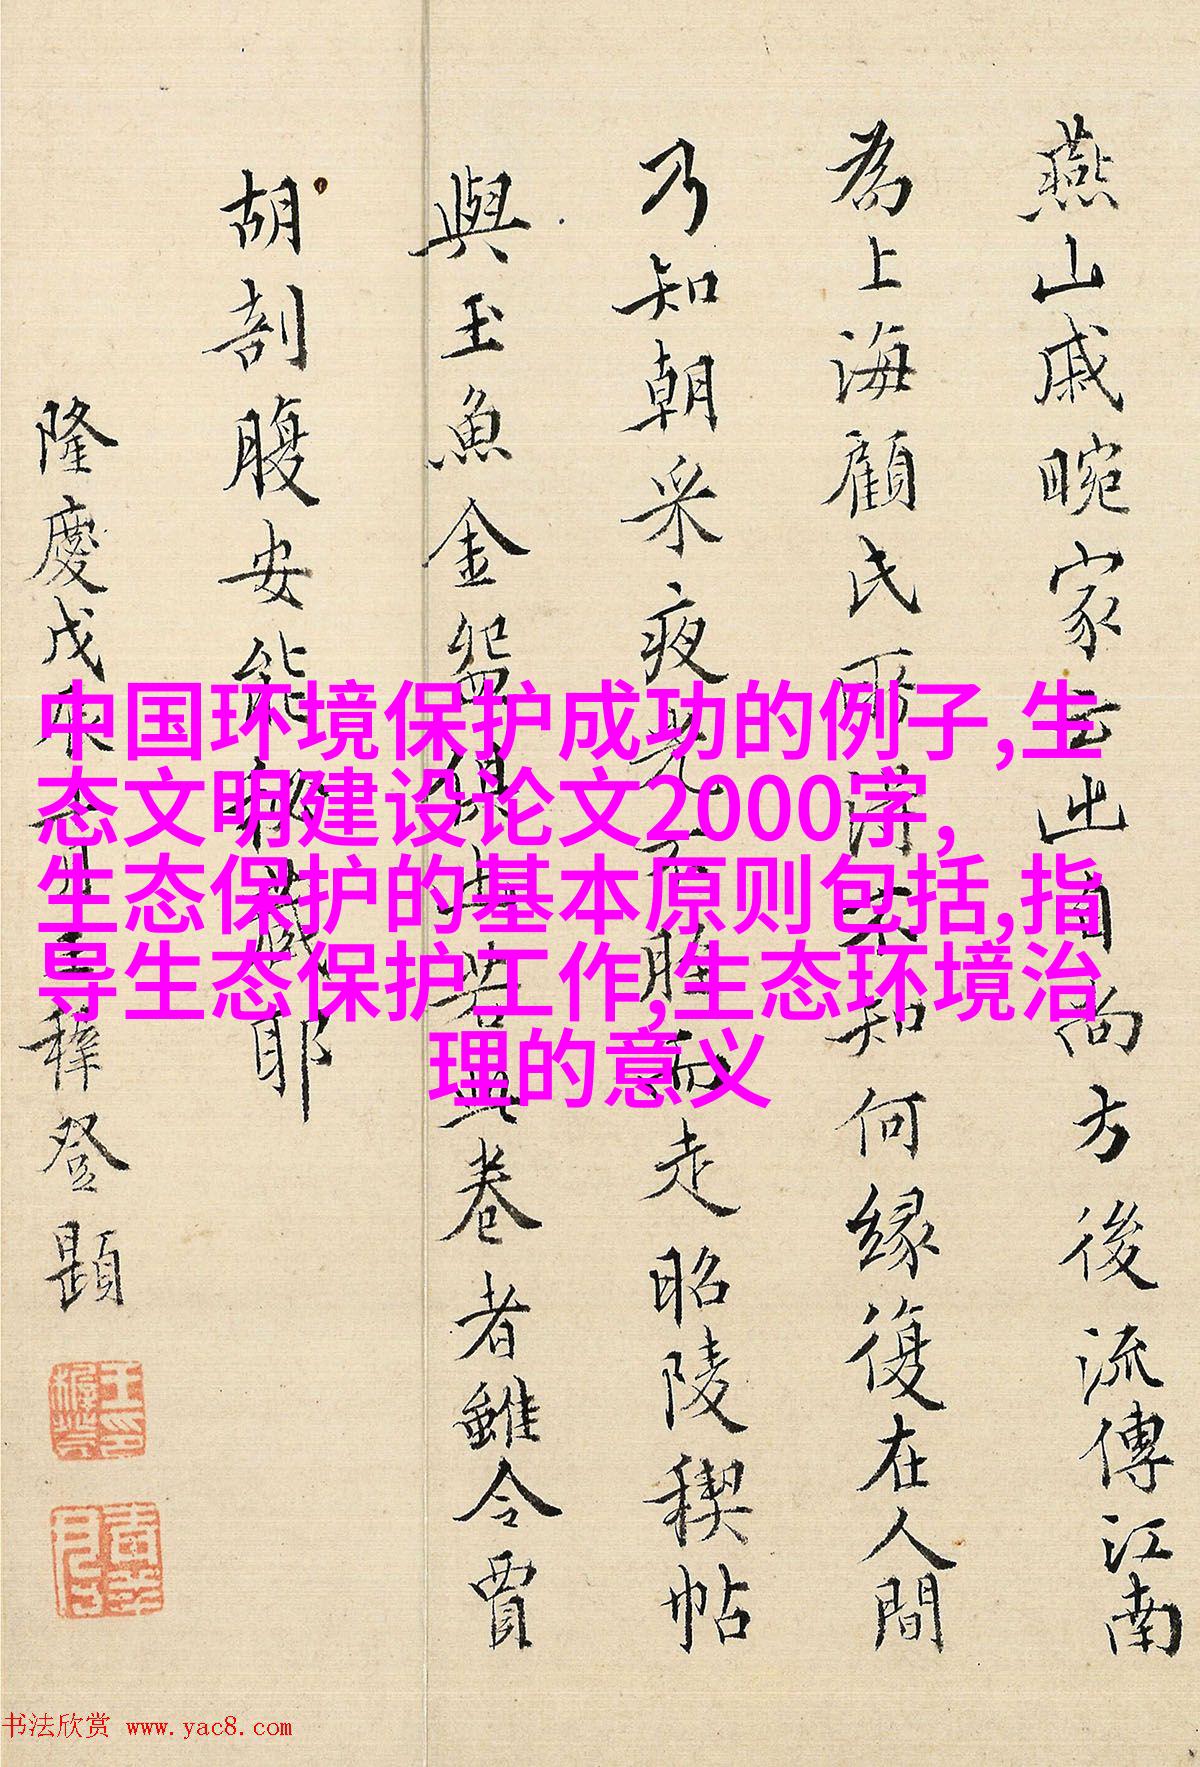 燕山戚畹家云出自尚方後流傳江南
為上海顧氏所知何縁復在人間
乃知朝采夜光不脛而走昭陵稧帖
與玉魚金盌俱出若卷者雖令賈
胡剖腹安能秘藏耶
隆慶戊辰六月王穉登題
中国环境保护成功的例子,生
态文明建设论文2000字,
生态保护的基本原则包括,指
导生态保护工作,生态环境治
理的意义
书法欣赏 www.yac8.com